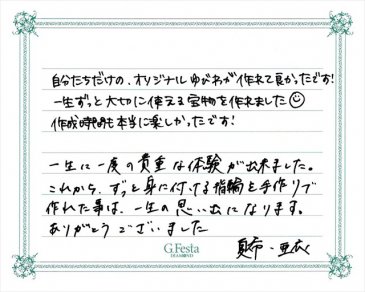 自分たちだけの、オリジナルゆびわが作れて良かったです!
一生ずっと大切に使える宝物を作れました☺
作成時間も本当に楽しかったです!
一生に一度の貴重な体験が出来ました。
これから、ずっと身に付ける指輪を手作りで
作れた事は、一生の思い出になります。
ありがとうございました
G.Festa
DIAMOND